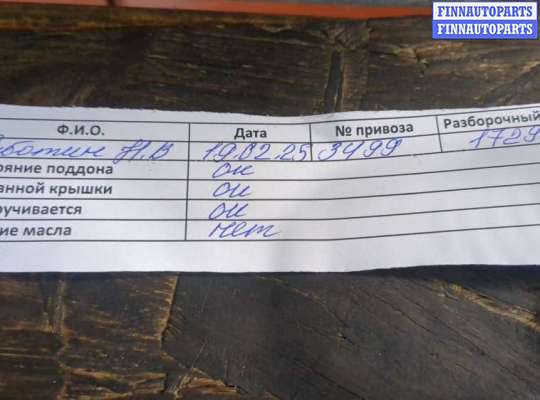 FINNAUTOPARTS
FINNAUTOPARTS
Ф.И.О. Дата № привоза Разборочный
Н.В 19.02.25 3499 1729
яние поддона ок
анной крышки ок
ручивается ок
ие масла нет